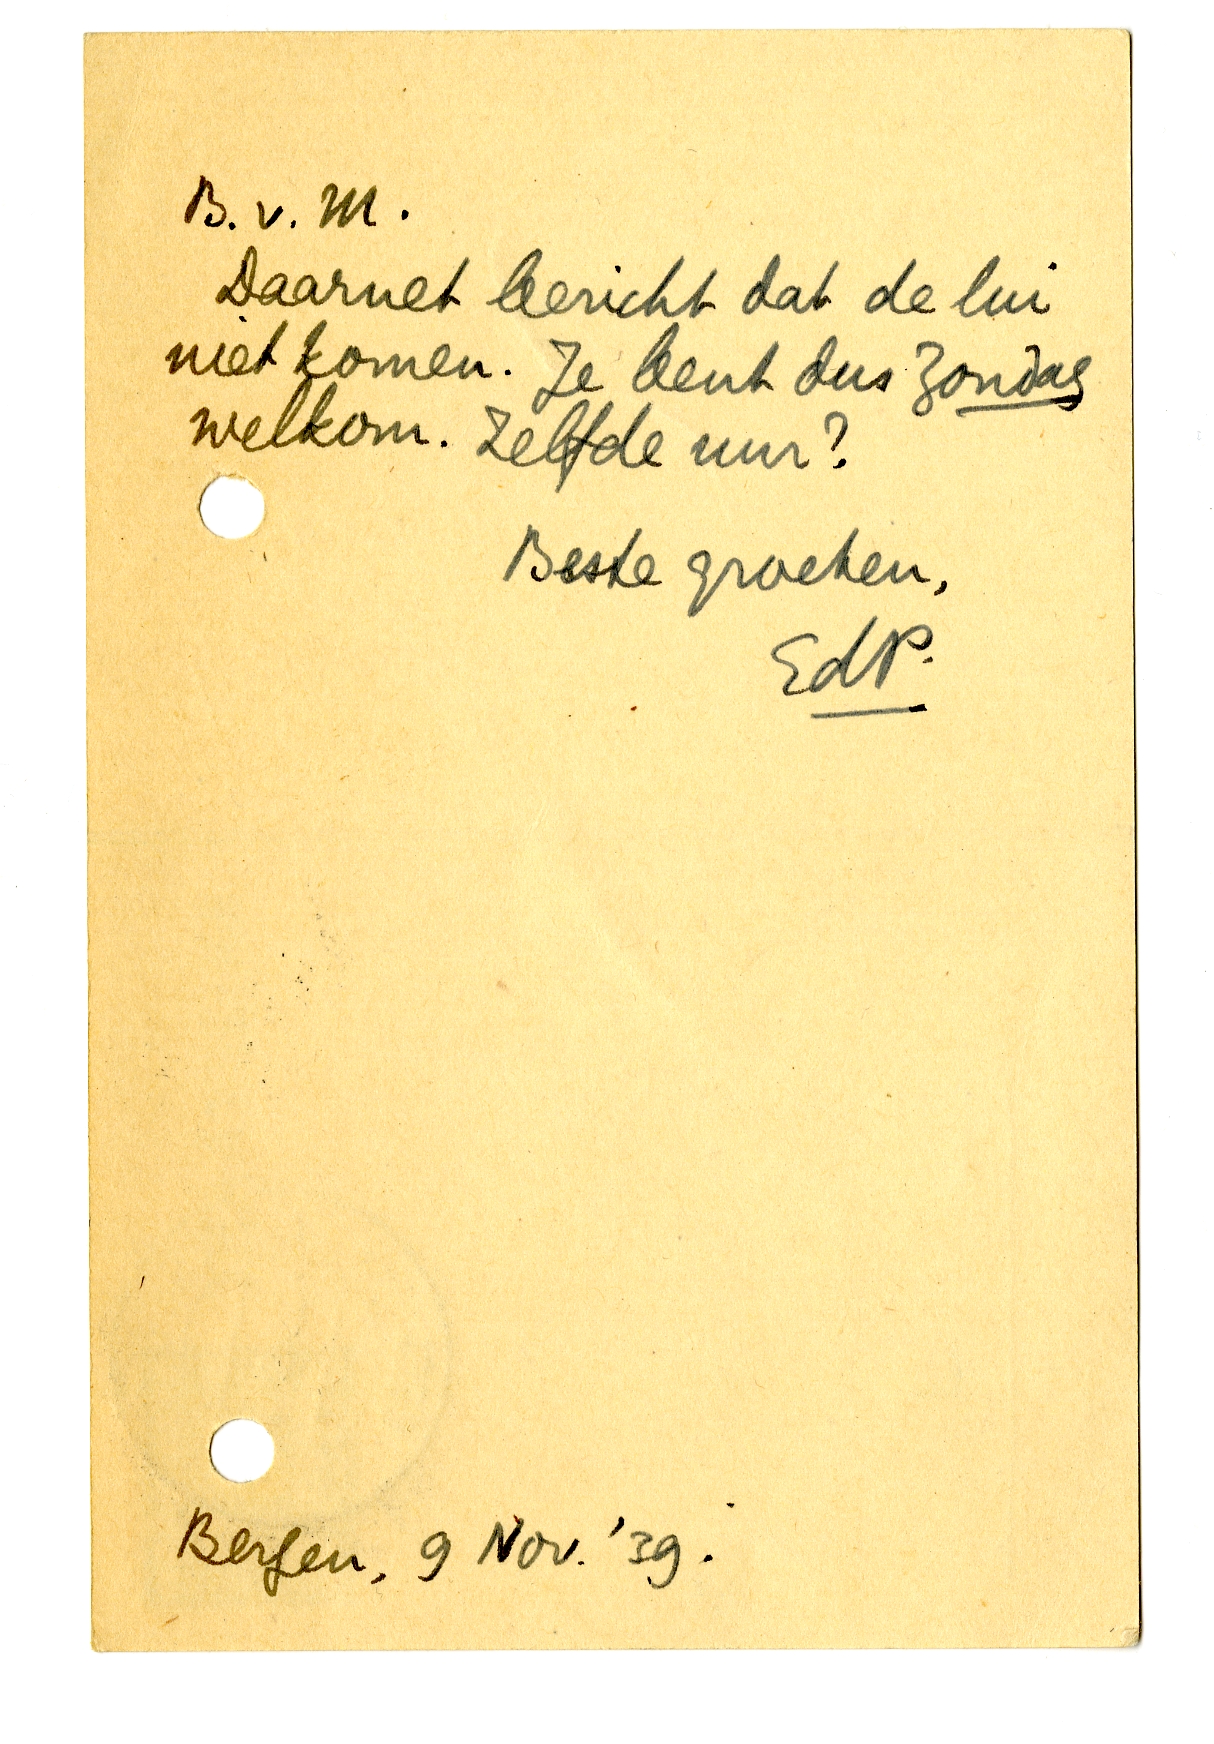 B. v. M.
Daarnet bericht dat de lui
niet komen. Je bent dus Zondag
welkom. Zelfde uur?
Beste groeten,
EdP.
Bergen, 9 Nov. '39.